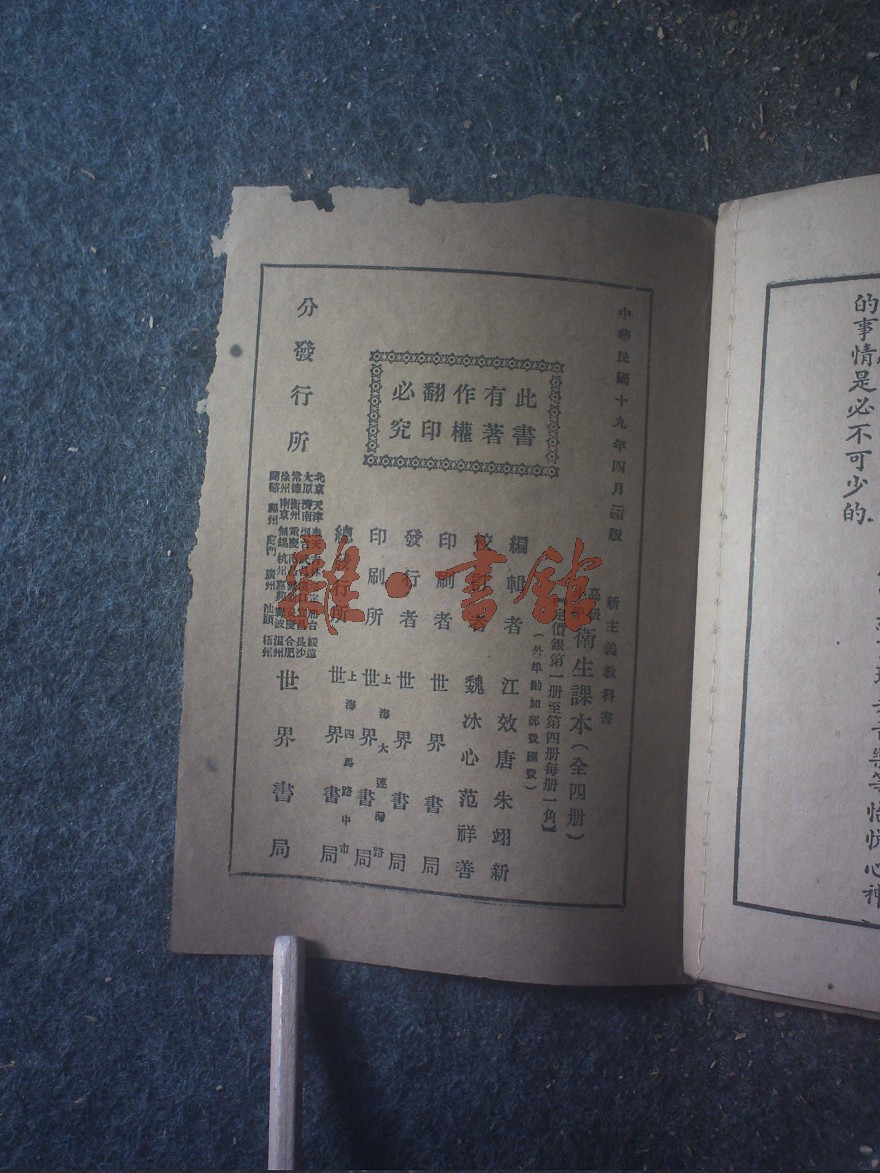 中華民國十九年四月三版
新主義教科書
高級
衛生課本（全四册）
【定價銀第一册至第四册每册一角】
（外埠酌加郵費匯費）
此書
有著
作權
翻印
必究
編輯者 江效唐 朱翊新
校訂者 魏冰心 范祥善
印刷者 世界書局
發行者 世界書局
印刷所 上海大連灣路 世界書局
總發行所 上海四馬路中市 世界書局
分發行所
北京 天津 奉天
太原 濟南 烟台
常德 衡州 重慶
徐州 南京 無錫 杭州 嘉興 寧波 溫州
蘭谿 廈門 廣州 汕頭 梧州
世界書局
雜·書館
的事情是必不可少的.
音樂等怡悅心神